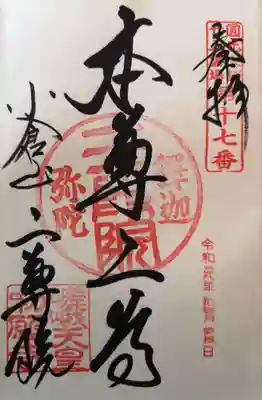 奉拝
圓
第十七番
本尊二尊
釋迦
二尊院
弥陀
小倉山二尊院
嵯峨天皇
勅願
令和元年